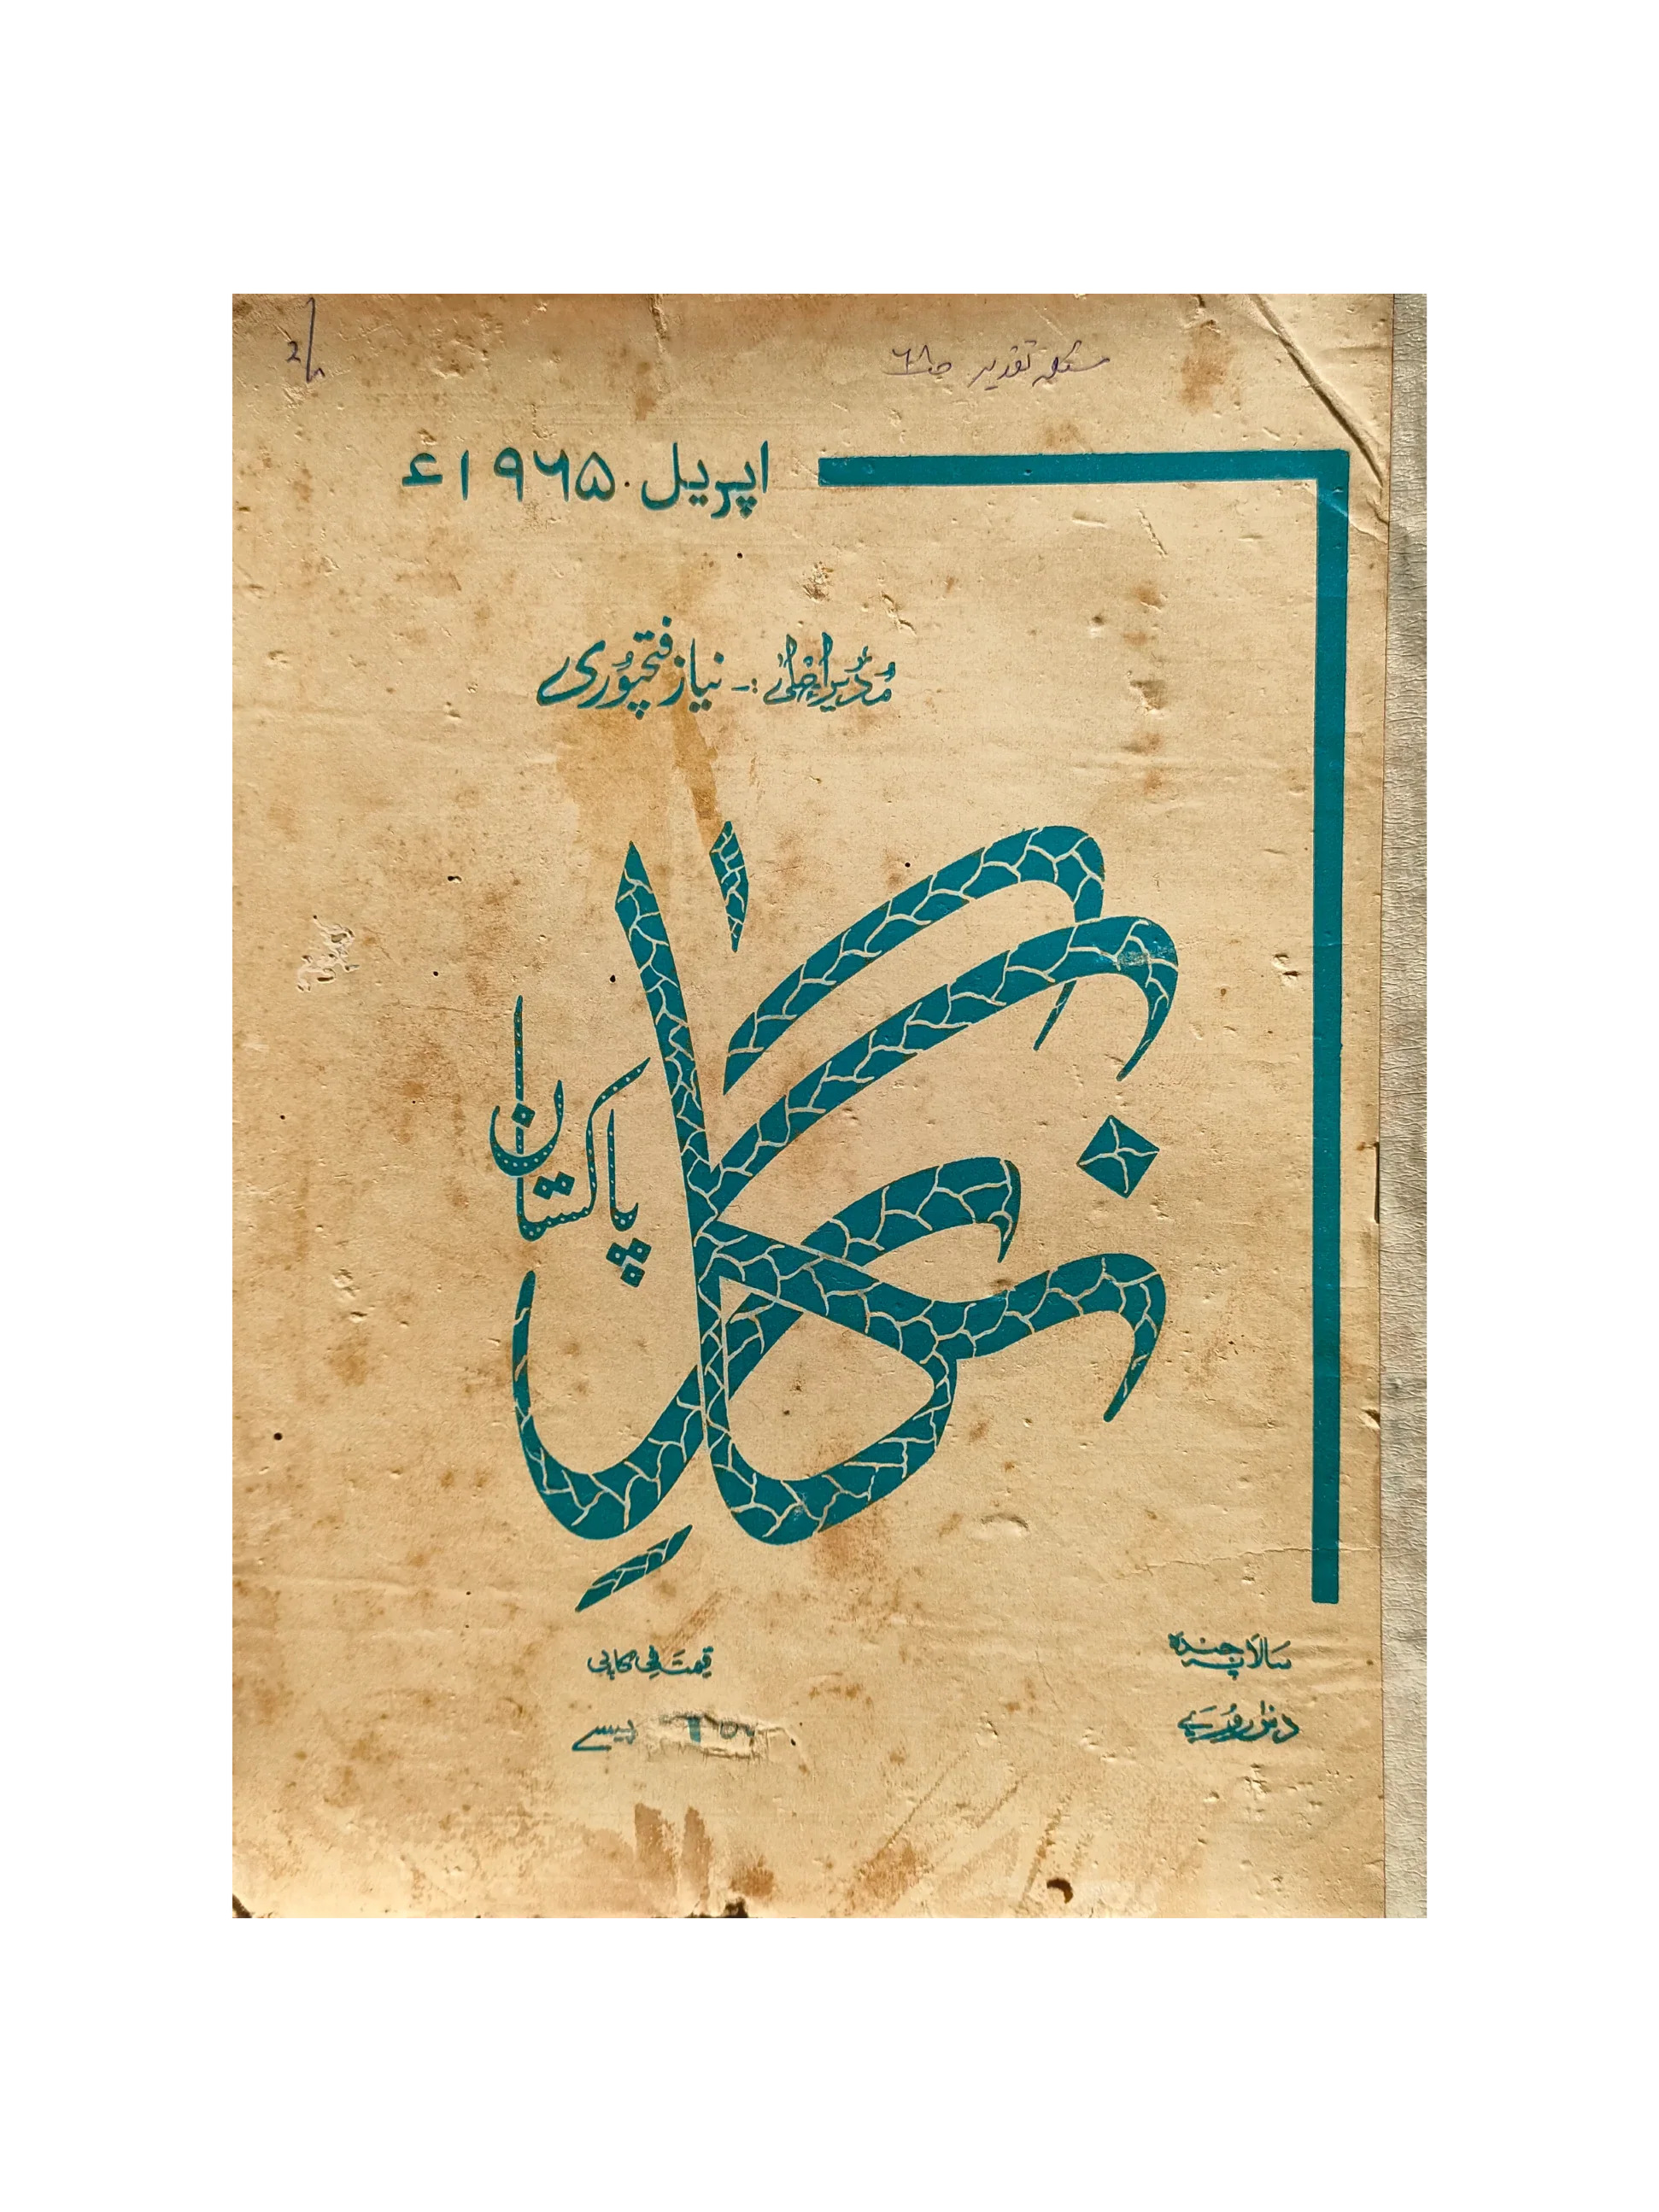 مسئلہ تقدیر
اپریل ۱۹۶۵ء
مدیر اعلیٰ :- نیاز فتحپوری
نگار
پاکستان
سالانہ چندہ
دس روپے
قیمت فی کاپی
پیسے